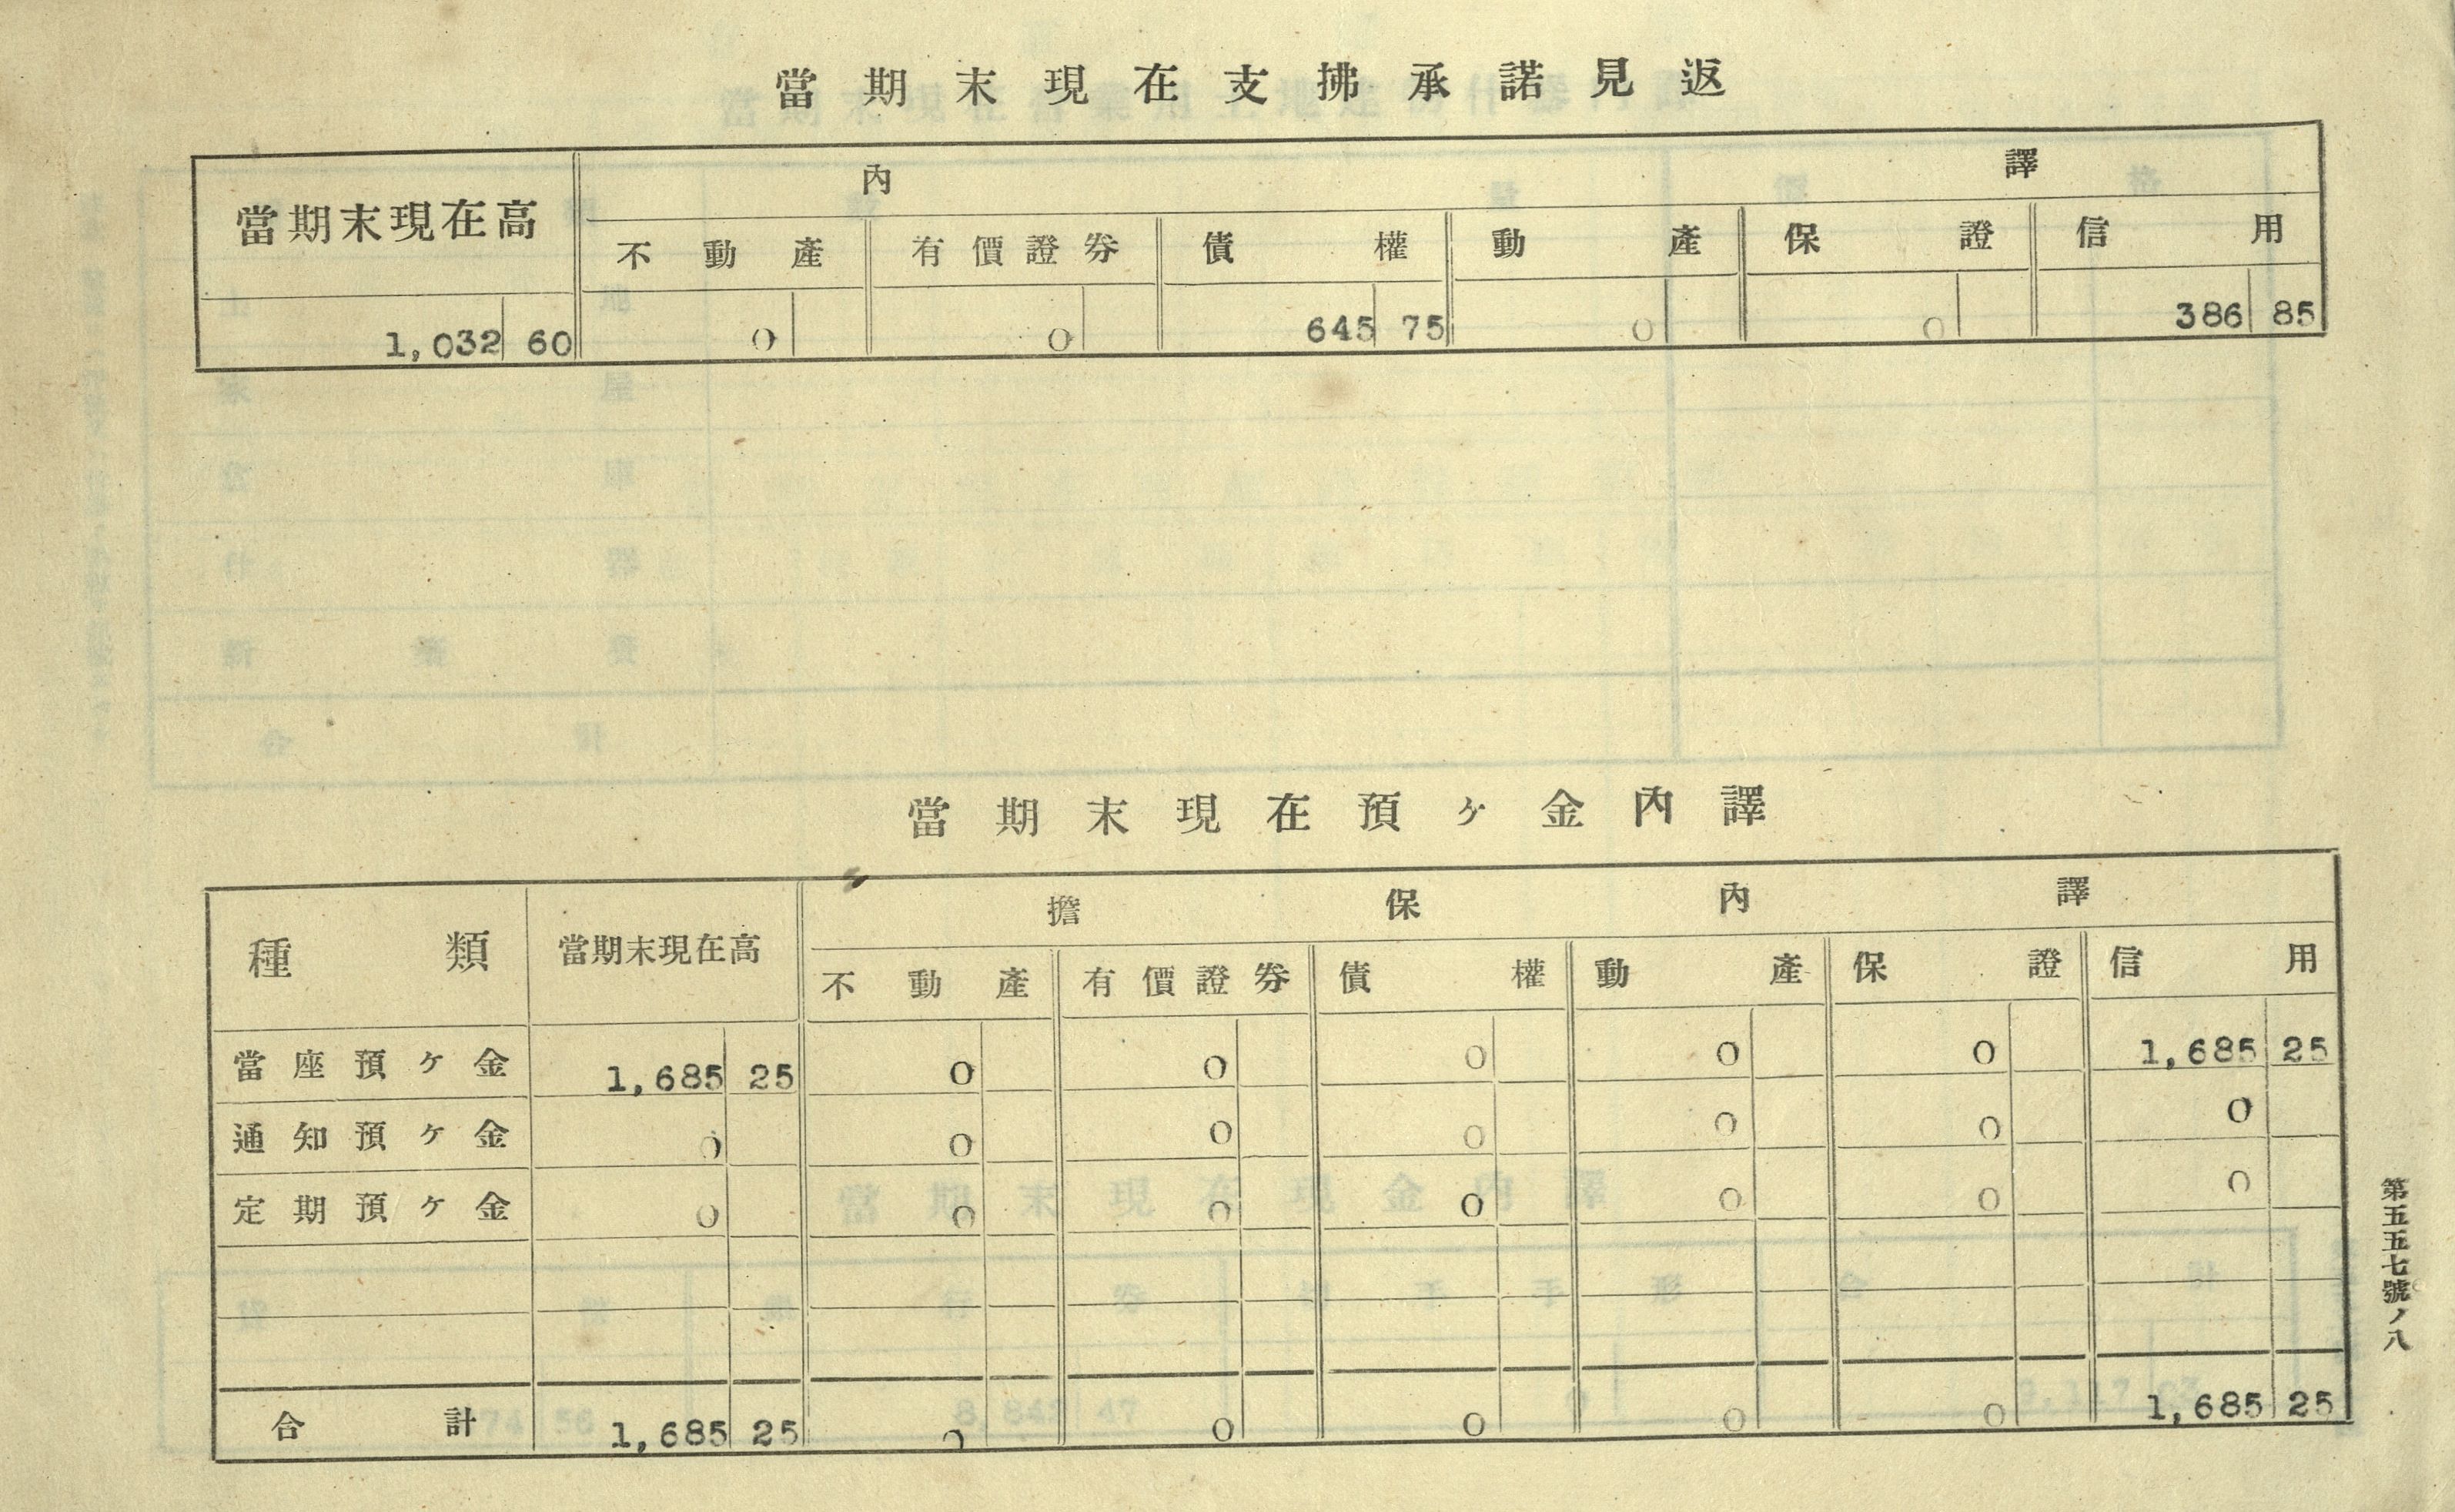 當期末現在支拂承諾見返
內譯
當期末現在高 不動產 有價證券 債權 動產 保證 信用
1,032 60 0 0 645 75 0 0 386 85
當期末現在預ヶ金內譯
擔保內譯
種類 當期末現在高 不動產 有價證券 債權 動產 保證 信用
當座預ヶ金 1,685 25 0 0 0 0 0 1,685 25
通知預ヶ金 0 0 0 0 0 0 0
定期預ヶ金 0 0 0 0 0 0 0
合計 1,685 25 0 0 0 0 0 1,685 25
第五五七號ノ八